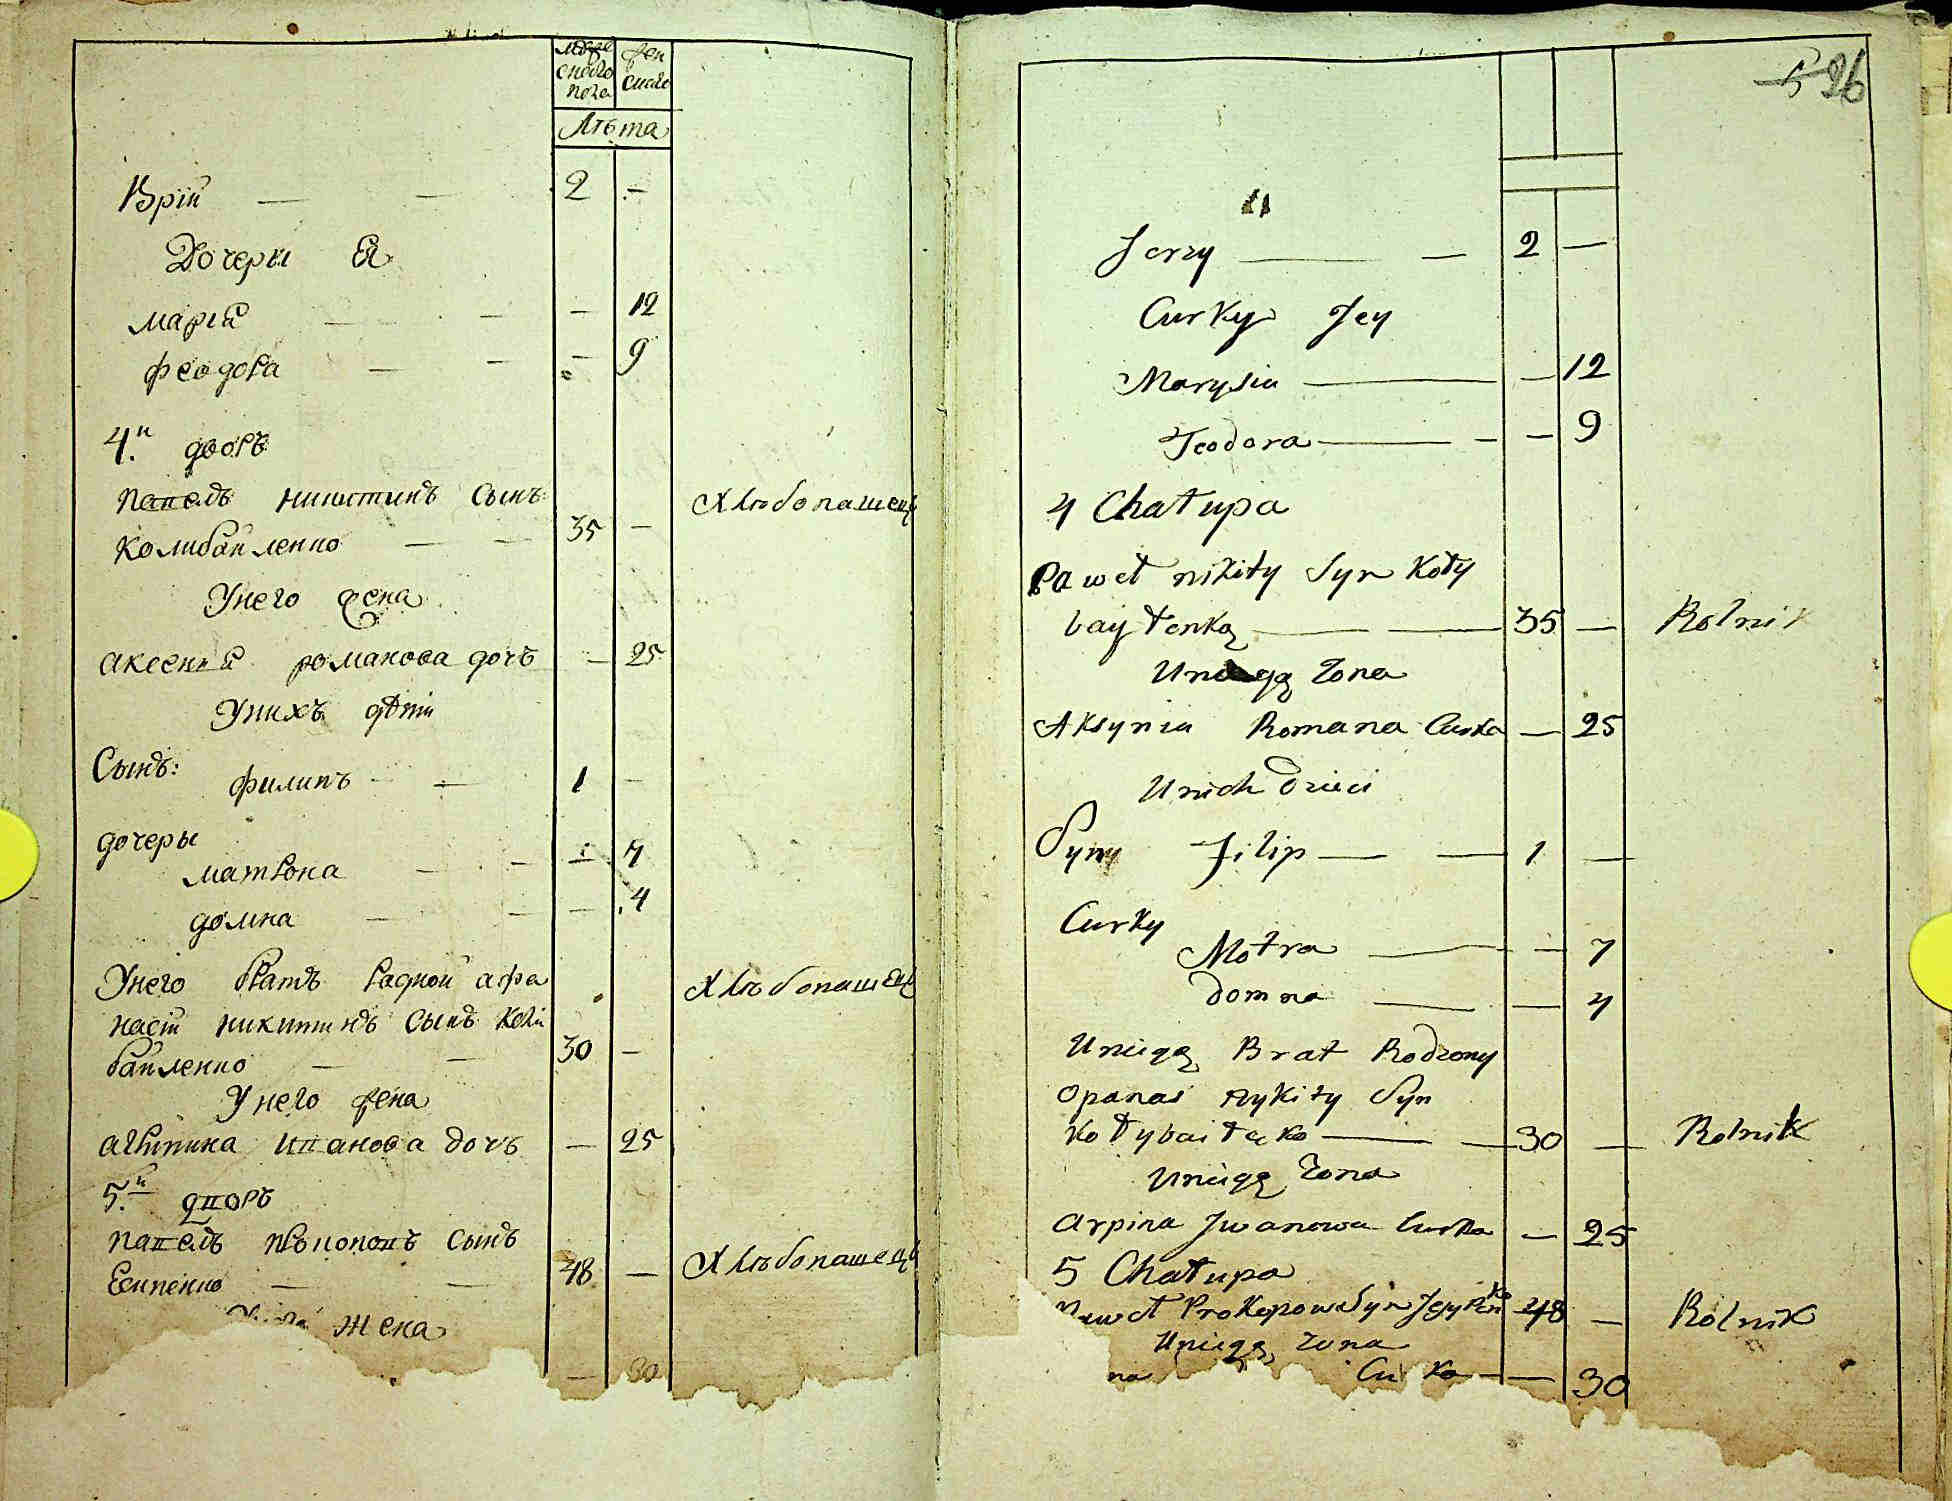 мужескаго пола
женскаго
Лѣта
Юрїй — — 2 —
Дочери Ея
Марія — — — 12
Феодора — — — 9
4.й дворъ
Павелъ Никитинъ Сынъ: Хлѣбопашецъ
Колибайленко — — 35 —
Унего жена
Аксенія романова дочъ — 25
Унихъ дѣти
Сынъ: Филипъ — — 1 —
дочеры
матрона — — — 7
домна — — — 4
Унего братъ родной афа Хлѣбопашецъ
насій никитинъ Сынъ Коли
байленко — — 30 —
Унего жена
агрипина иванова дочъ — 25
5.й дворъ
павелъ прокоповъ Сынъ
Есипенко — — 48 — Хлѣбопашецъ
жена
— 30
5 26
Jerzy — — 2 —
Curky Jey
Marysia — — 12
Teodora — — — 9
4 Chałupa
Paweł nikity Syn Koły
bayłenką — — 35 — Rolnik
Uniegą Zona
Aksynia Romana Curka — 25
Unich Dzieci
Syny Filip — — 1 —
Curky
Motra — — 7
Domna — — 4
Uniegą Brat Rodzony
Opanas Nykity Syn
Kołybaiłęko — — 30 — Rolnik
Uniegą Zona
Arpina Jwanowa Curka — 25
5 Chałupa
Paweł Prokopowa Syn Jesypenko 48 — Rolnik
Uniegą zona
na Curka — — 30